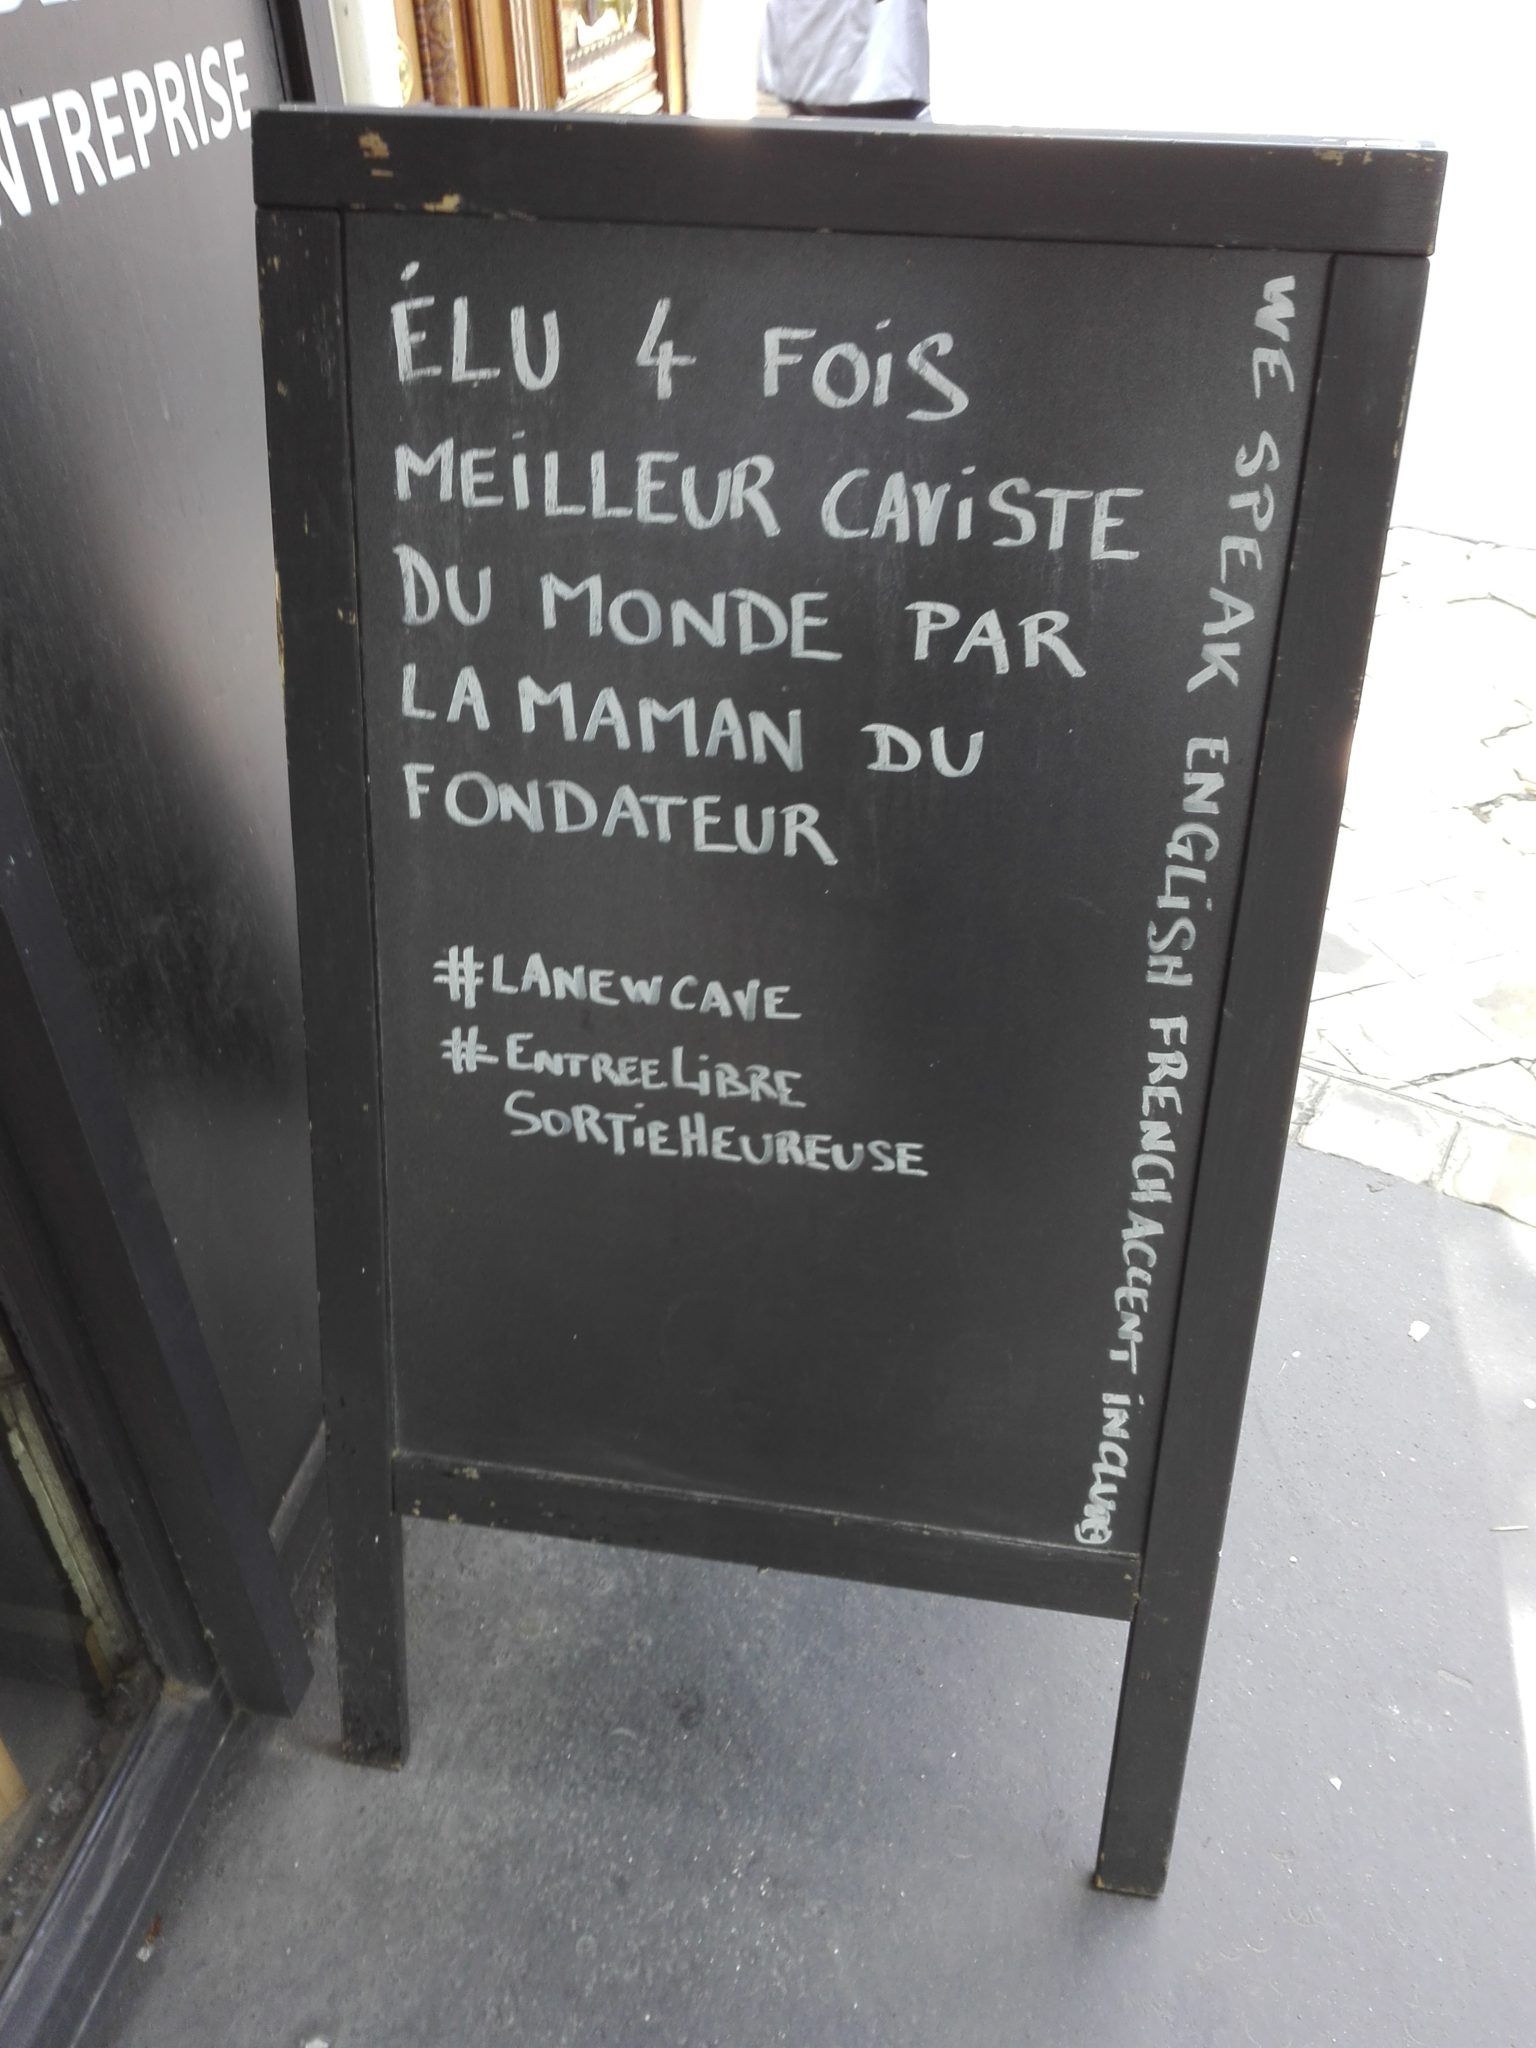 NTREPRISE
ÉLU 4 FOIS
MEILLEUR CAVISTE
DU MONDE PAR
LA MAMAN DU
FONDATEUR
#LANEWCAVE
#ENTREELIBRE
SORTIEHEUREUSE
WE SPEAK ENGLISH FRENCH ACCENT